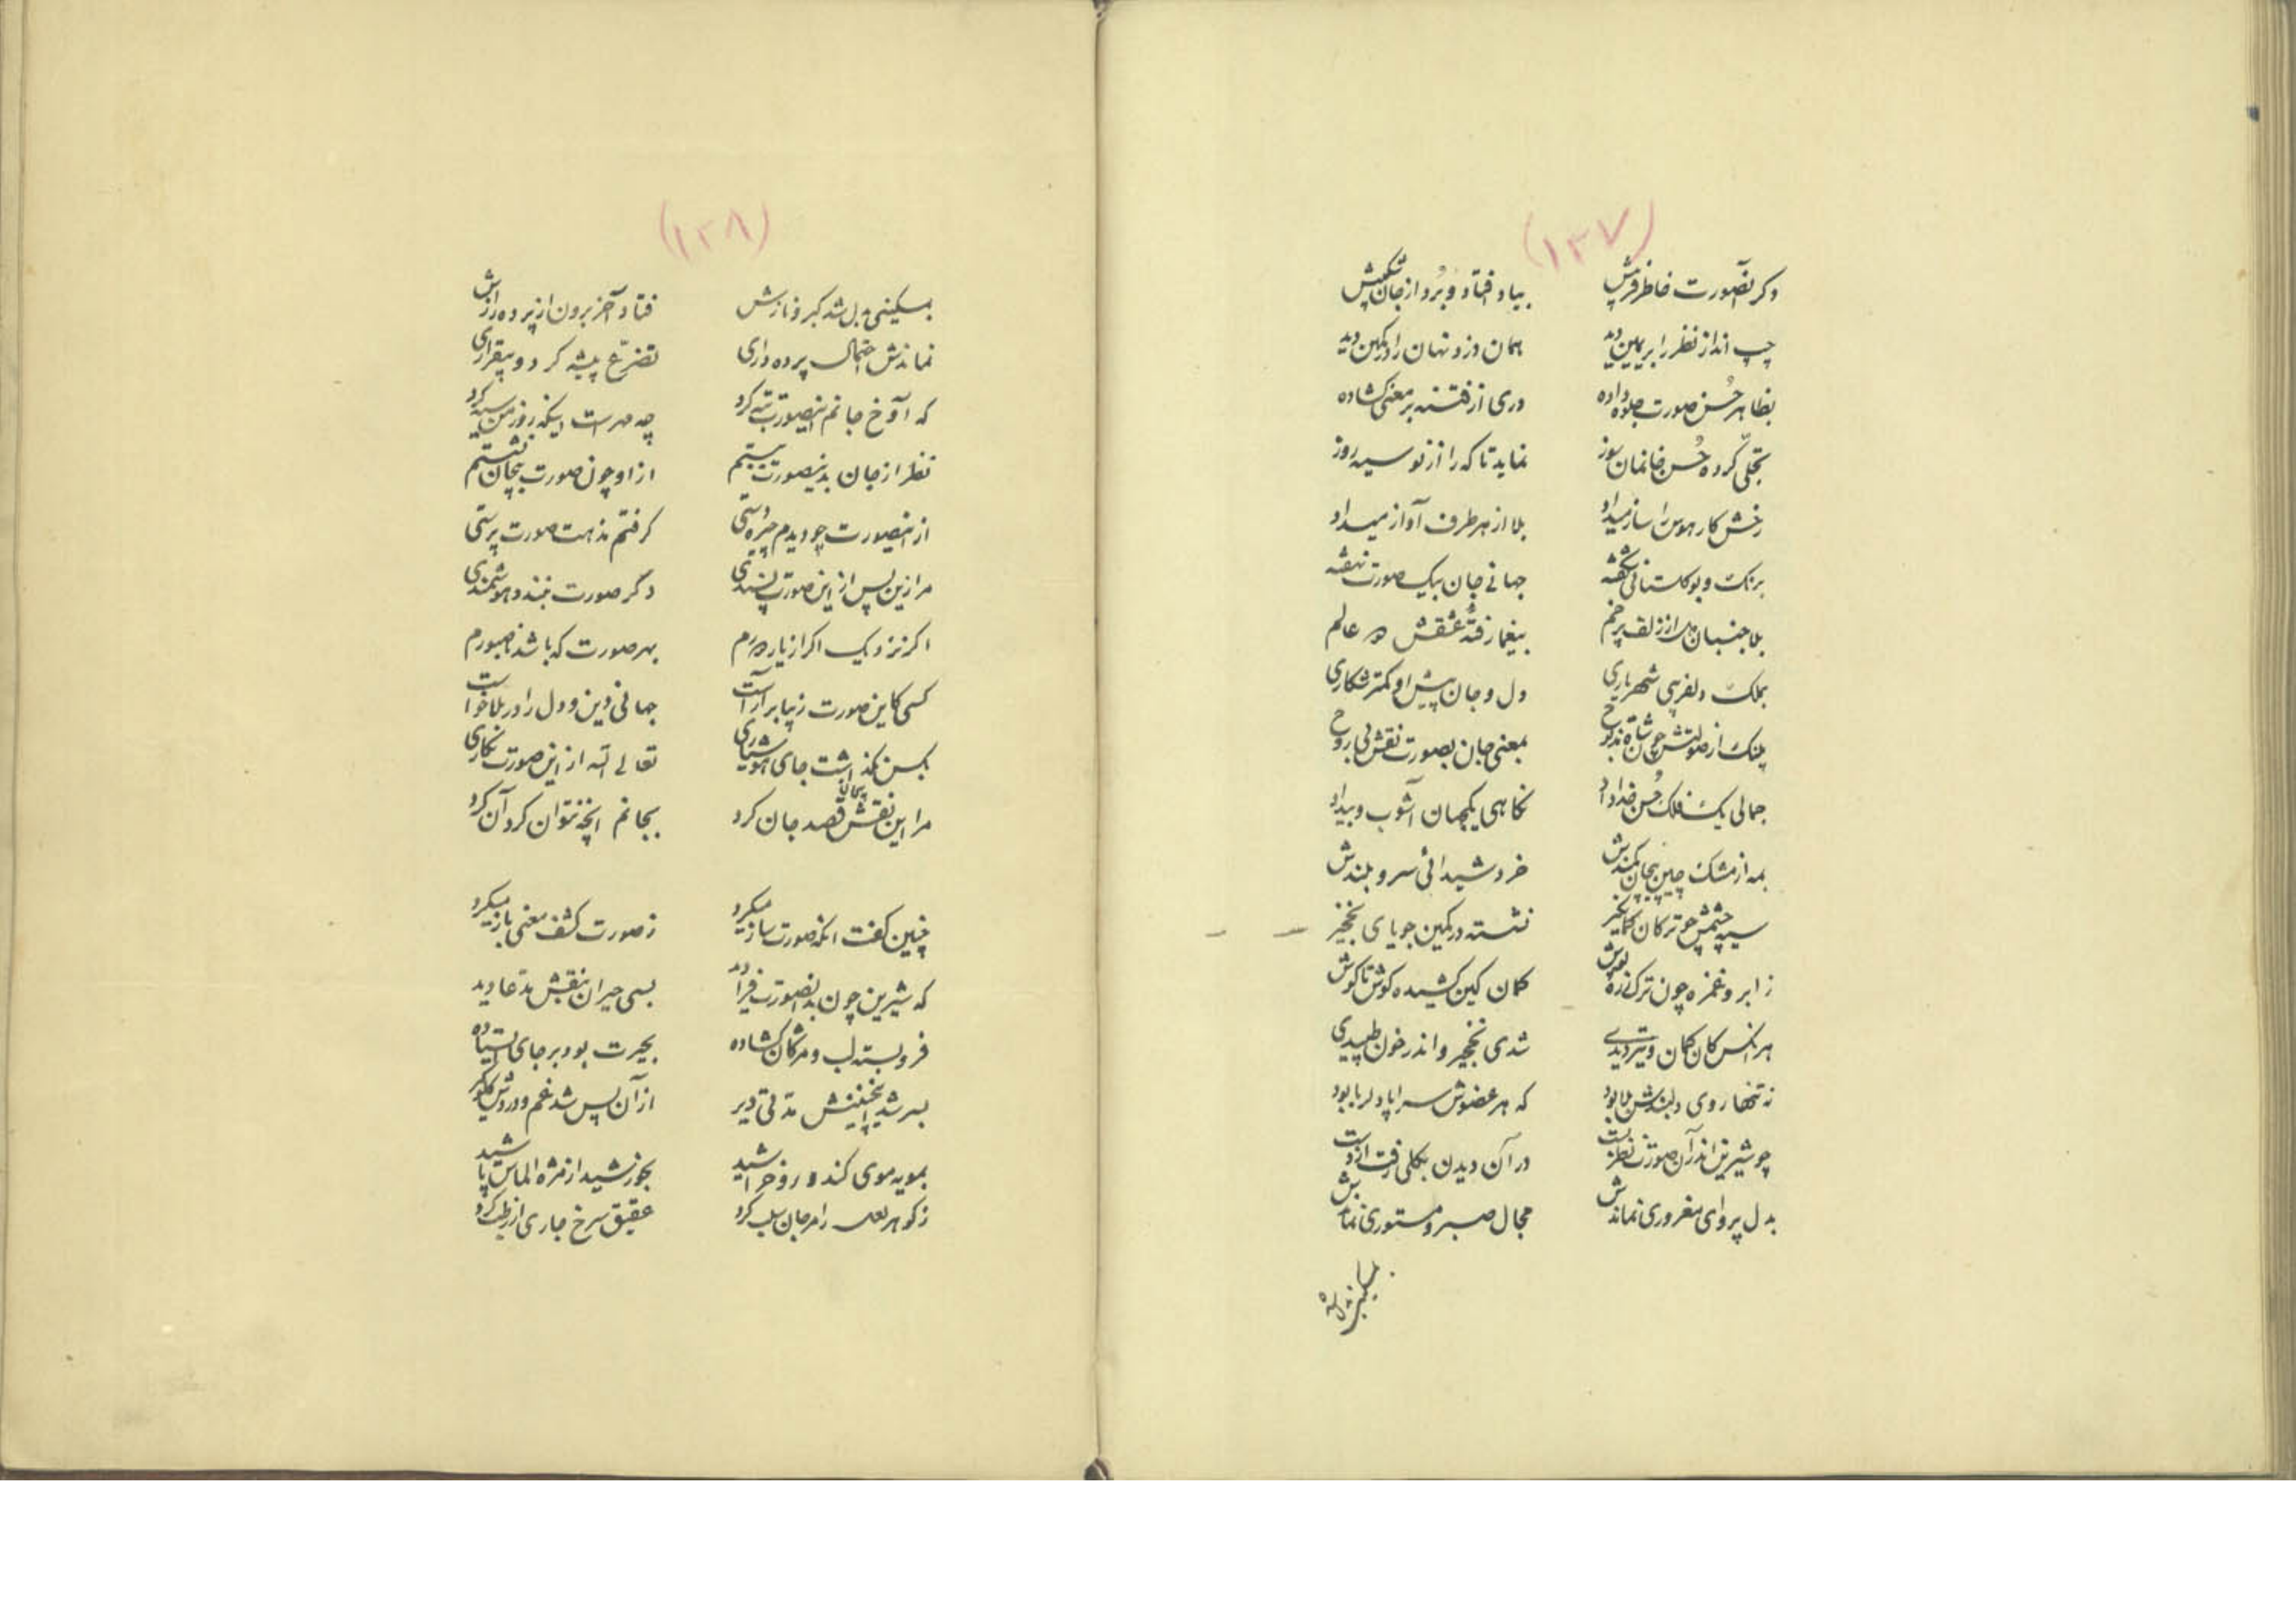 (۱۳۷)
دکر آنصورت خاطر فریبش بیاد افتاد و برد از جان شکیبش
چپ انداز نظر را بریمین دید همان دزد نهان را در کمین دید
بظاهر حسن صورت جلوه داده دری از فتنه بر معنی کشاده
تجلی کرده حسن خانمان سوز نماید تا که را از نو سیه روز
رخش کار هوس را ساز میداد بلا از هر طرف آواز میداد
برنک و بو کلستانی شکفته جهانی جان بیک صورت نهفته
بلا جنبان از زلف پر خم بیغما رفته عشقش در عالم
بملک دلفریبی شهریاری دل و جان پیش او کمتر شکاری
پلنک از صولتش چون شاة مذبوح بمعنی جان بصورت نقش بی روح
جمالی یک فلک حسن خداداد نکاهی یکجهان آشوب و بیداد
همه از مشک چین پیچان کمندش خرد شیدائی سرو بلندش
سیه چشمش چو ترکان کمانکیر نشسته در کمین جویای نخجیر
ز ابرو غمزه چون ترک زره پوش کمان کین کشیده کوش تا کوش
هر آنکس کان کمان و تیر دیدی شدی نخجیر و اندر خون طپیدی
نه تنها روی دلبندش بلا بود که هر عضوش سراپا دلربا بود
چو شیرین اندر آن صورت نظر بست در آن دیدن بکلی رفت از دست
بدل پروای مغروری نماندش مجال صبر و مستوری نماندش
بمسکینی بدل شد
(۱۳۸)
بمسکینی بدل شد کبر و نازش فتاد آخر برون از پرده رازش
نماندش احتمال پرده داری تضرع پیشه کرد و بیقراری
که آوخ جانم اینصورت تبه کرد چه مهرست اینکه روز من سیه کرد
نظر از جان بدینصورت ببستم از او چون صورت بیجان نشستم
از اینصورت چو دیدم چیره دستی کرفتم مذهب صورت پرستی
مرا زین پس از این صورت پسندی دگر صورت نبندد هوشمندی
اکر نزدیک اکر از یار دورم بهر صورت که باشد ناصبورم
کسی کاین صورت زیبا بر آراست جهانی دین و دل را در بلا خواست
بکس نکذاشت جای هوشیاری تعالی الله از این صورت نکاری
مرا این نقش بیجان قصد جان کرد بجانم آنچه نتوان کرد آن کرد
چنین کفت آنکه صورت ساز میکرد ز صورت کشف معنی باز میکرد
که شیرین چون بدانصورت فرا دید بسی حیران بنقش مدعا دید
فرو بسته لب و مژکان کشاده بحیرت بود بر جای ایستاده
بسر شد اینچنینش مدتی دیر از آن پس شد غم و دردش کلوکیر
بمویه موی کند و رو خراشید بخورشید از مژه الماس پاشید
ز کوهر لعل را مرجان سلب کرد عقیق سرخ جاری از رطب کرد